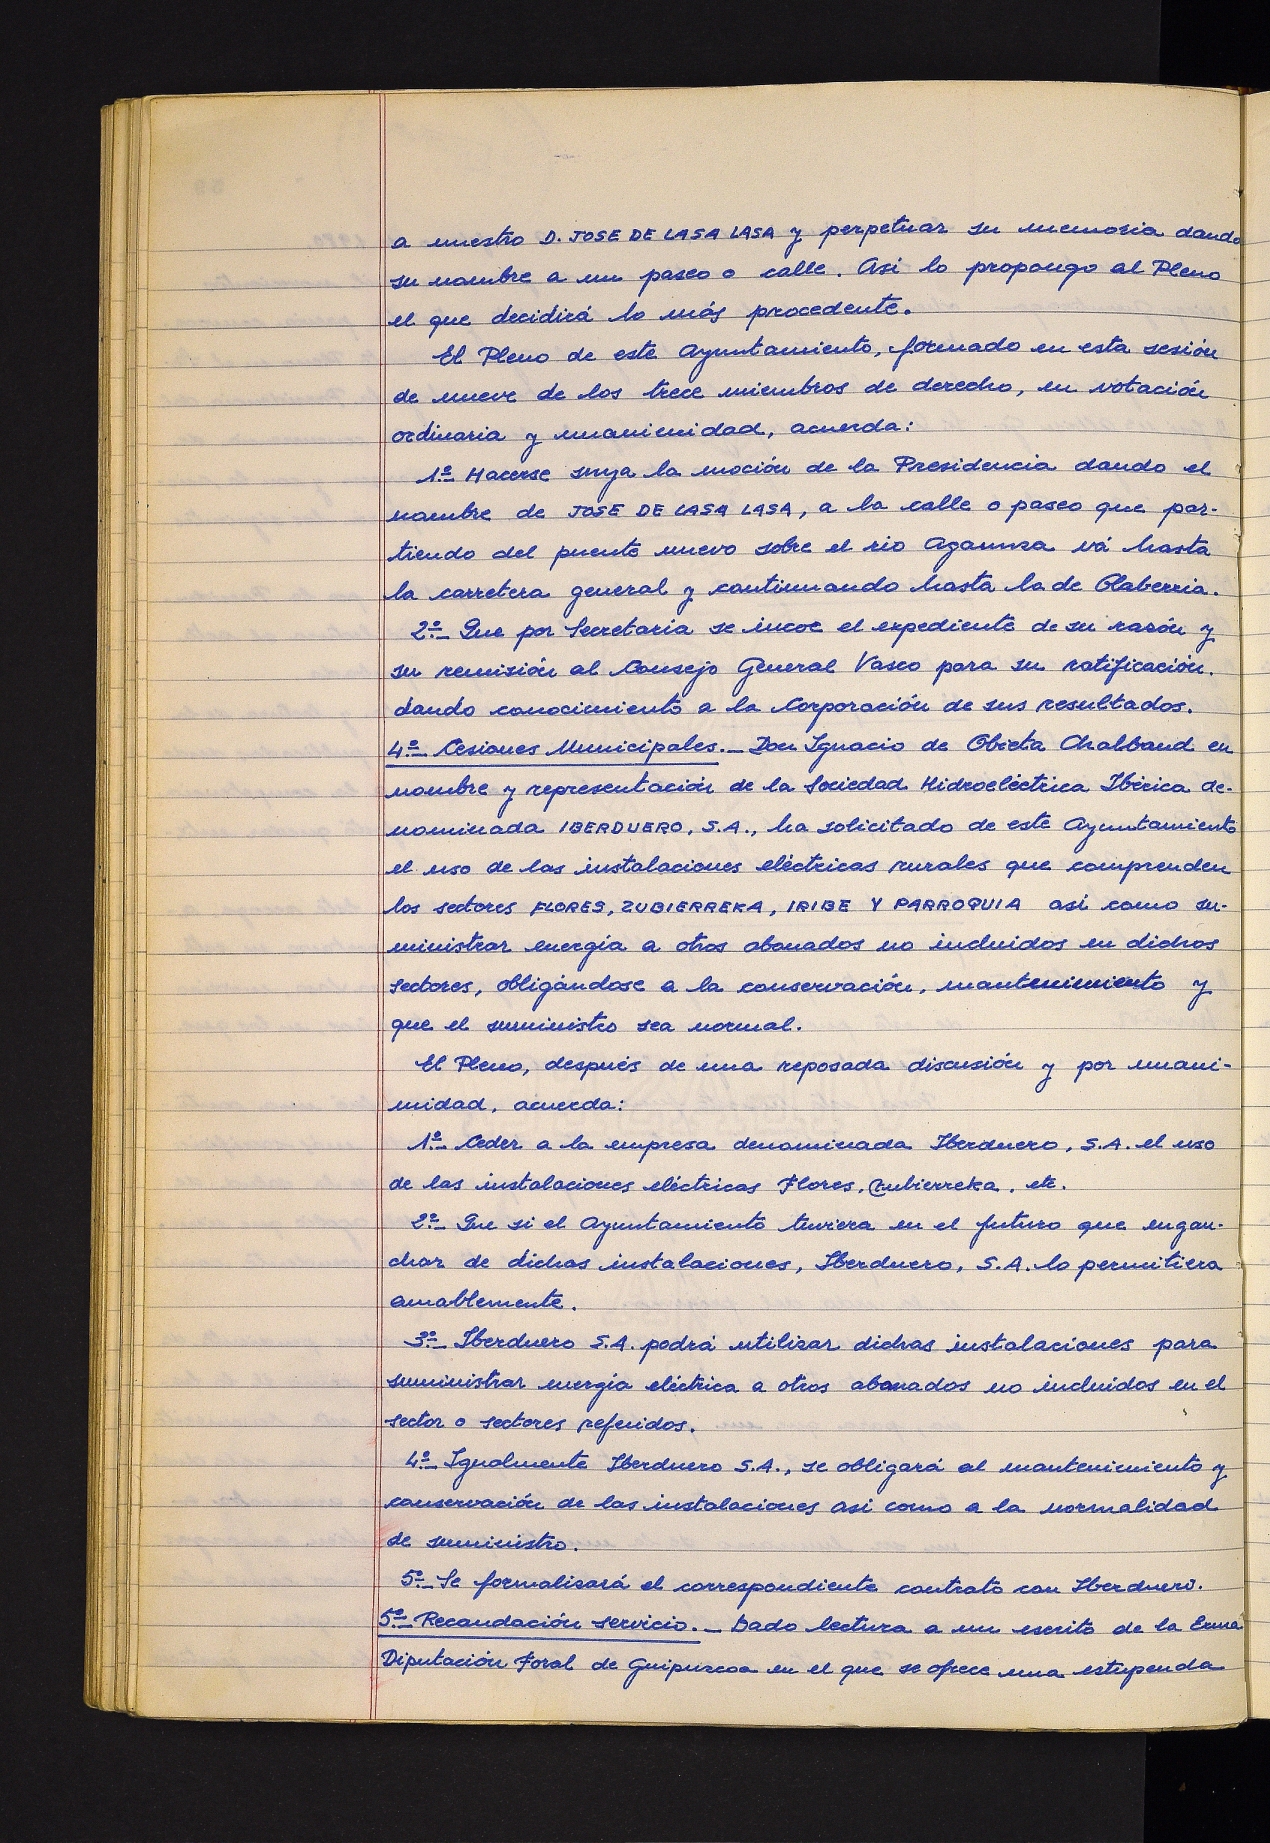 a nuestro D. JOSE DE LASA LASA y perpetuar su memoria dando
su nombre a un paseo o calle. Asi lo propongo al Pleno
el que decidirá lo más procedente.
El Pleno de este Ayuntamiento, formado en esta sesión
de nueve de los trece miembros de derecho, en votación
ordinaria y unanimidad, acuerda:
1º.- Hacerse suya la moción de la Presidencia dando el
nombre de JOSE DE LASA LASA, a la calle o paseo que par-
tiendo del puente nuevo sobre el rio Agaunza vá hasta
la carretera general y continuando hasta la de Olaberria.
2º.- Que por Secretaria se incoe el expediente de su razón y
su remisión al Consejo General Vasco para su ratificación.
dando conocimiento a la Corporación de sus resultados.
4º.- Cesiones Municipales.- Don Ignacio de Obieta Chalbaud en
nombre y representación de la Sociedad Hidroeléctrica Ibérica de-
nominada IBERDUERO, S.A., ha solicitado de este Ayuntamiento
el uso de las instalaciones eléctricas rurales que comprenden
los sectores FLORES, ZUBIERREKA, IRIBE Y PARROQUIA asi como su-
ministrar energía a otros abonados no incluidos en dichos
sectores, obligándose a la conservación, mantenimiento y
que el suministro sea normal.
El Pleno, después de una reposada discusión y por unani-
midad, acuerda:
1º.- Ceder a la empresa denominada Iberduero, S.A. el uso
de las instalaciones eléctricas Flores, Zubierreka, etc.
2º.- Que si el Ayuntamiento tuviera en el futuro que engan-
char de dichas instalaciones, Iberduero, S.A. lo permitiera
amablemente.
3º.- Iberduero S.A. podrá utilizar dichas instalaciones para
suministrar energía eléctrica a otros abonados no incluidos en el
sector o sectores referidos.
4º.- Igualmente Iberduero S.A., se obligará al mantenimiento y
conservación de las instalaciones asi como a la normalidad
de suministro.
5º.- Se formalizará el correspondiente contrato con Iberduero.
5º.- Recaudación servicio.- Dado lectura a un escrito de la Exma
Diputación Foral de Guipuzcoa en el que se ofrece una estupenda